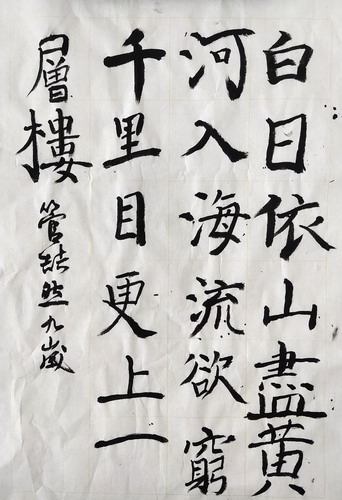 白日依山盡黄
河入海流欲窮
千里目更上一
層樓
管喆然九歲